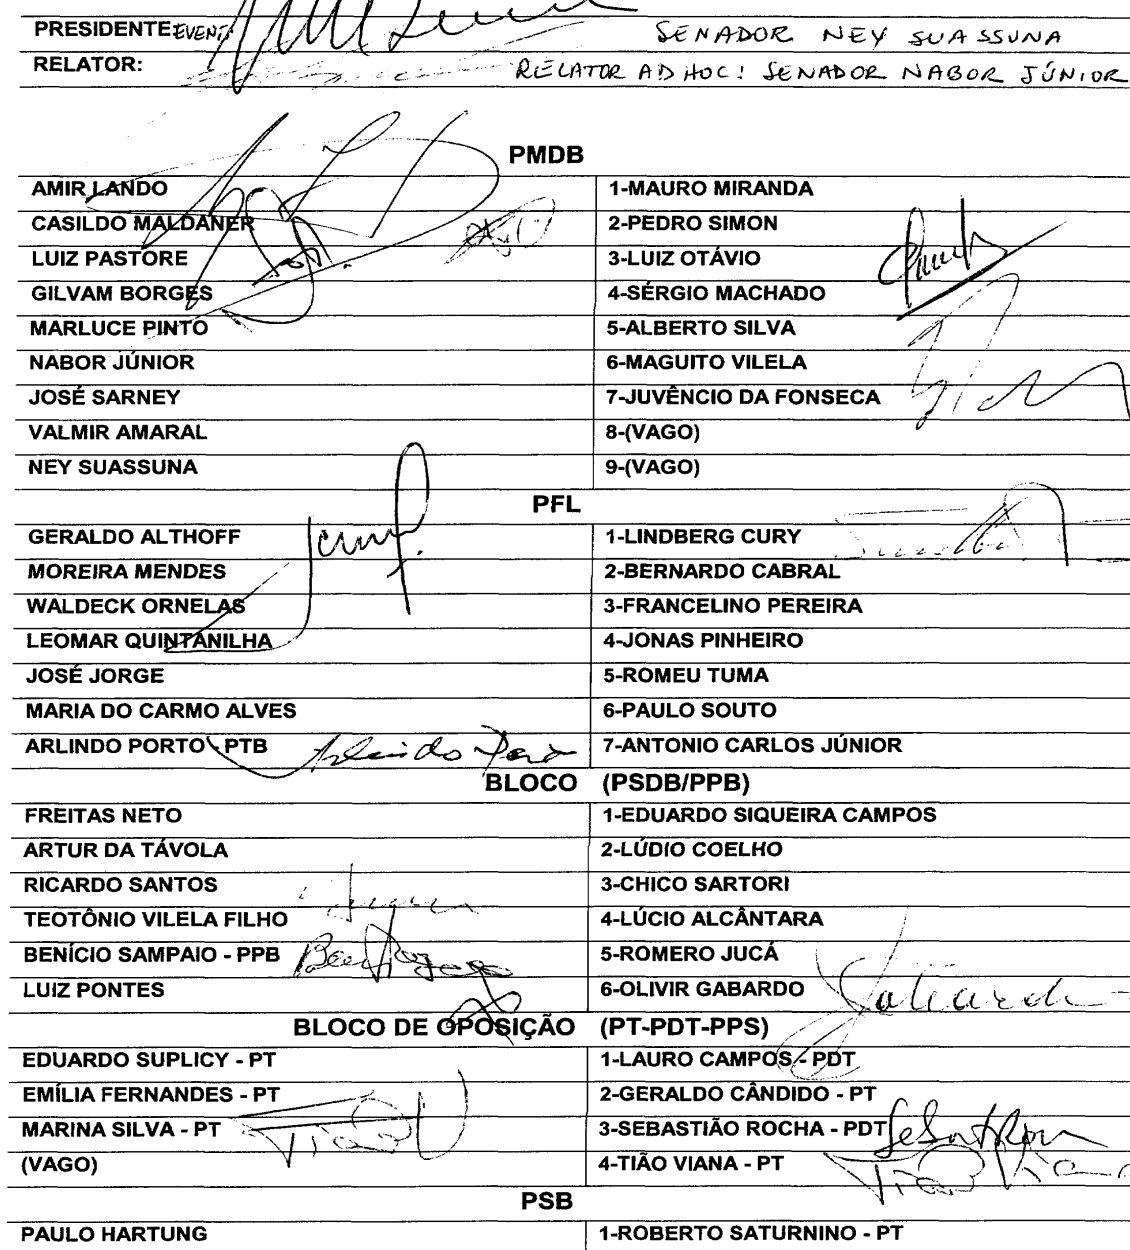 PRESIDENTE EVENT. SENADOR NEY SUASSUNA
RELATOR: RELATOR AD HOC: SENADOR NABOR JÚNIOR
PMDB
AMIR LANDO 1-MAURO MIRANDA
CASILDO MALDANER 2-PEDRO SIMON
LUIZ PASTORE 3-LUIZ OTÁVIO
GILVAM BORGES 4-SÉRGIO MACHADO
MARLUCE PINTO 5-ALBERTO SILVA
NABOR JÚNIOR 6-MAGUITO VILELA
JOSÉ SARNEY 7-JUVÊNCIO DA FONSECA
VALMIR AMARAL 8-(VAGO)
NEY SUASSUNA 9-(VAGO)
PFL
GERALDO ALTHOFF 1-LINDBERG CURY
MOREIRA MENDES 2-BERNARDO CABRAL
WALDECK ORNELAS 3-FRANCELINO PEREIRA
LEOMAR QUINTANILHA 4-JONAS PINHEIRO
JOSÉ JORGE 5-ROMEU TUMA
MARIA DO CARMO ALVES 6-PAULO SOUTO
ARLINDO PORTO - PTB Arlindo Porto 7-ANTONIO CARLOS JÚNIOR
BLOCO (PSDB/PPB)
FREITAS NETO 1-EDUARDO SIQUEIRA CAMPOS
ARTUR DA TÁVOLA 2-LÚDIO COELHO
RICARDO SANTOS 3-CHICO SARTORI
TEOTÔNIO VILELA FILHO 4-LÚCIO ALCÂNTARA
BENÍCIO SAMPAIO - PPB 5-ROMERO JUCÁ
LUIZ PONTES 6-OLIVIR GABARDO Gabardo
BLOCO DE OPOSIÇÃO (PT-PDT-PPS)
EDUARDO SUPLICY - PT 1-LAURO CAMPOS - PDT
EMÍLIA FERNANDES - PT 2-GERALDO CÂNDIDO - PT
MARINA SILVA - PT 3-SEBASTIÃO ROCHA - PDT
(VAGO) 4-TIÃO VIANA - PT Tião Viana
PSB
PAULO HARTUNG 1-ROBERTO SATURNINO - PT